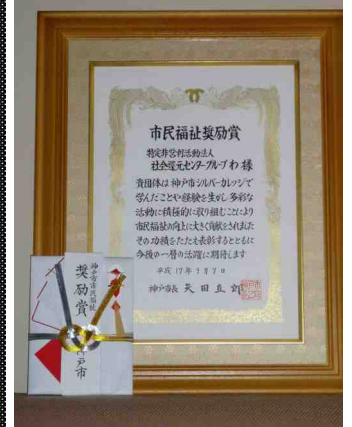 市民福祉奨励賞
特定非営利活動法人
社会還元センターグループわ 様
貴団体は神戸市シルバーカレッジで
学んだことや経験を生かし多彩な
活動に積極的に取り組むことにより
市民福祉の向上に大きく貢献をされました
その功績をたたえ表彰するとともに
今後の一層の活躍に期待します
平成17年9月7日
神戸市長 矢田立郎
神戸市市民福祉
奨励賞
神戸市